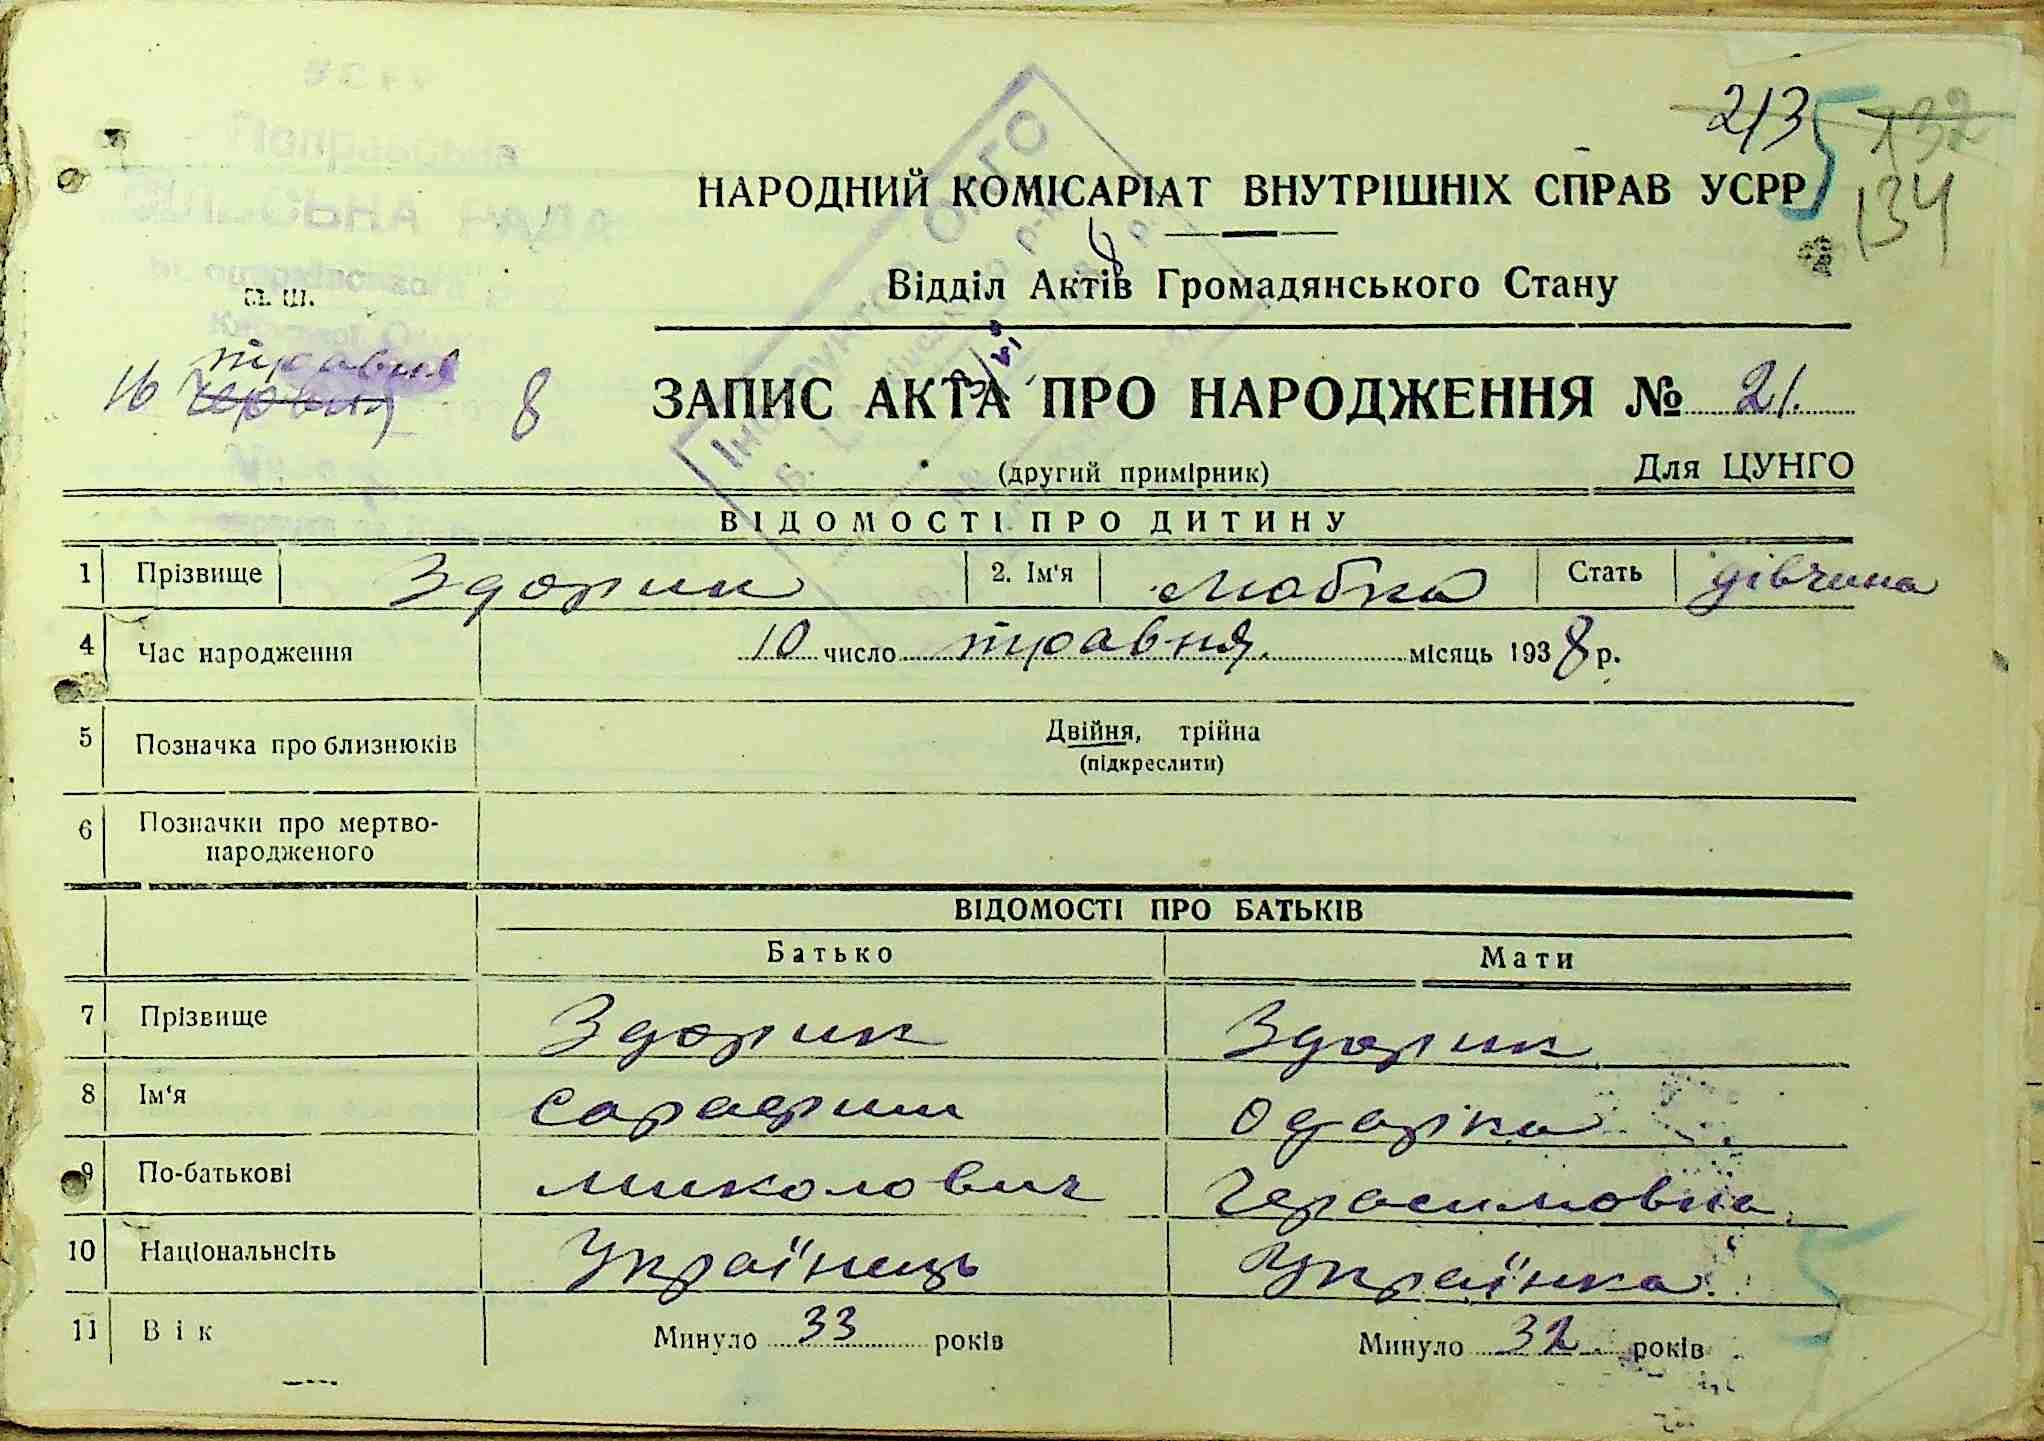 213 5 132
134
НАРОДНИЙ КОМІСАРІАТ ВНУТРІШНІХ СПРАВ УСРР
Відділ Актів Громадянського Стану
М. Ш.
16 червня травня 8
ЗАПИС АКТА ПРО НАРОДЖЕННЯ № 21.
(другий примірник)
Для ЦУНГО
ВІДОМОСТІ ПРО ДИТИНУ
1 Прізвище Здорик 2. Ім'я Любка Стать дівчина
4 Час народження 10 число травня. місяць 1938 р.
5 Позначка про близнюків Двійня, трійна
(підкреслити)
6 Позначки про мертво-
народженого
ВІДОМОСТІ ПРО БАТЬКІВ
Батько Мати
7 Прізвище Здорик Здорик
8 Ім'я Сарафим Одарка
9 По-батькові Миколович Герасимовна
10 Національнсіть Українець Українка
11 Вік Минуло 33 років Минуло 32 років
5